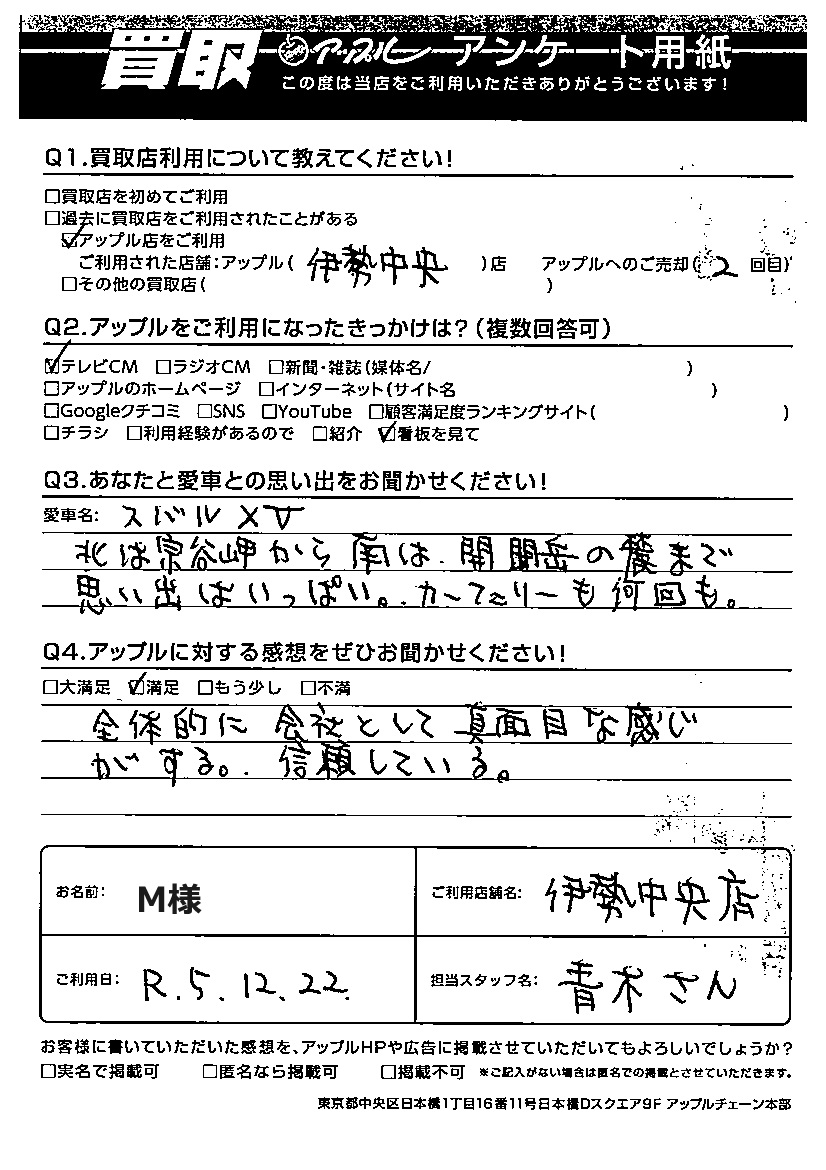 買取 アップル アンケート用紙
この度は当店をご利用いただきありがとうございます!
Q1.買取店利用について教えてください!
□買取店を初めてご利用
□過去に買取店をご利用されたことがある
☑アップル店をご利用
ご利用された店舗:アップル( 伊勢中央 )店 アップルへのご売却( 2 回目)
□その他の買取店( )
Q2.アップルをご利用になったきっかけは?(複数回答可)
☑テレビCM □ラジオCM □新聞・雑誌(媒体名/ )
□アップルのホームページ □インターネット(サイト名 )
□Googleクチコミ □SNS □YouTube □顧客満足度ランキングサイト( )
□チラシ □利用経験があるので □紹介 ☑看板を見て
Q3.あなたと愛車との思い出をお聞かせください!
愛車名: スバル XV
北は宗谷岬から南は、開聞岳の麓まで
思い出はいっぱい。カーフェリーも何回も。
Q4.アップルに対する感想をぜひお聞かせください!
□大満足 ☑満足 □もう少し □不満
全体的に会社として真面目な感じ
がする。信頼している。
お名前: M様
ご利用店舗名: 伊勢中央店
ご利用日: R.5.12.22.
担当スタッフ名: 青木さん
お客様に書いていただいた感想を、アップルHPや広告に掲載させていただいてもよろしいでしょうか?
□実名で掲載可 □匿名なら掲載可 □掲載不可 ※ご記入がない場合は匿名での掲載とさせていただきます。
東京都中央区日本橋1丁目16番11号日本橋Dスクエア9F アップルチェーン本部